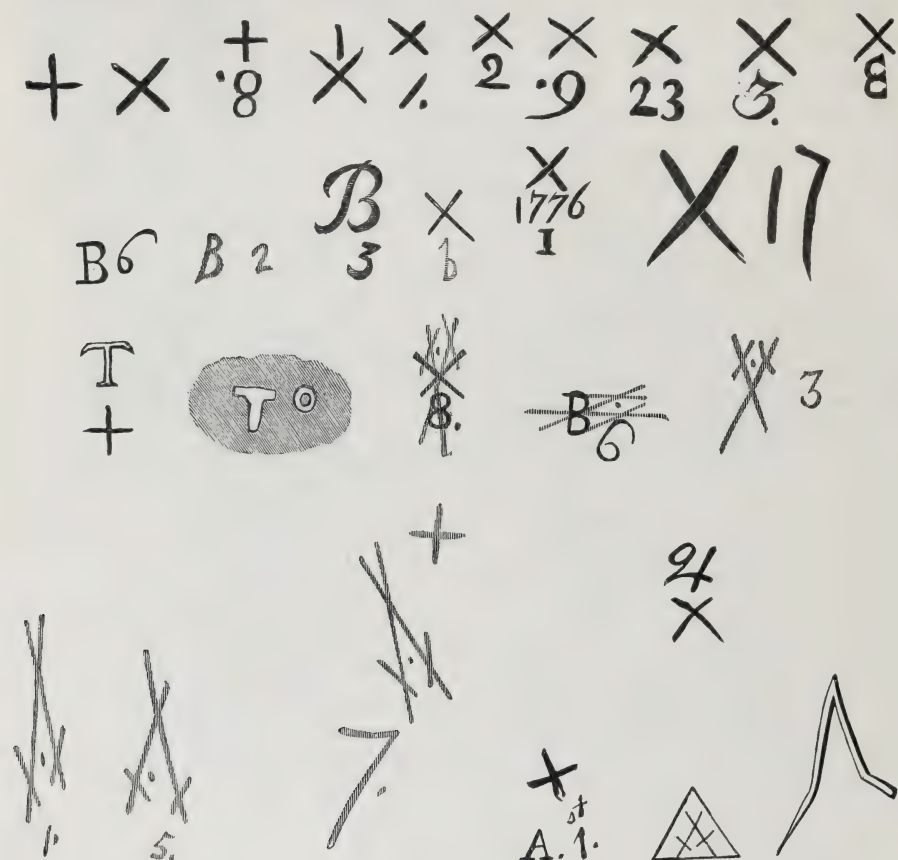 + × +
·8 × 1. × 2 × ·9 × 23 × 3. × 8
B6 B 2 B 3 × b × 1776 I X 17
T + T O 8. B 6 3
+ 4 ×
1. 5. 7. × st A. 1.